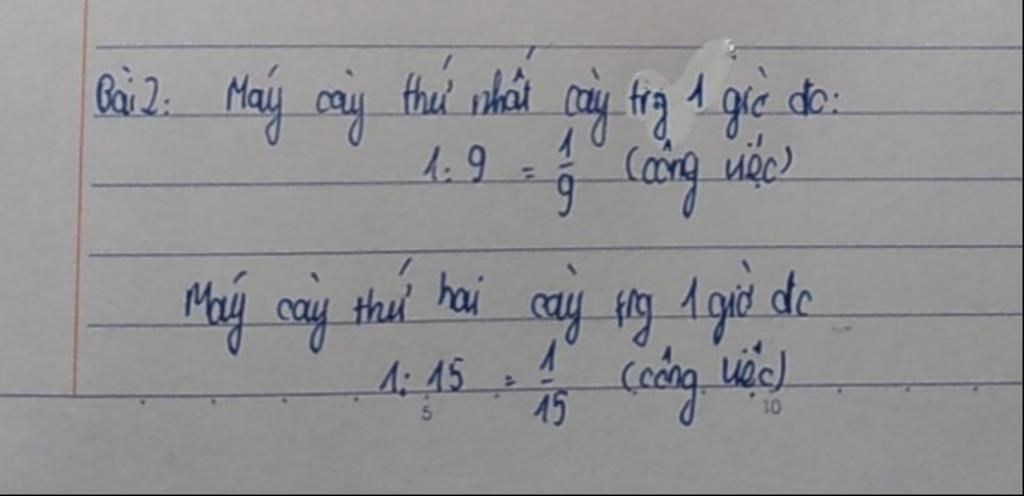 Bài 2: Máy cày thứ nhất cày trg 1 giờ đc:
1 : 9 = 1/9 (công việc)
Máy cày thứ hai cày trg 1 giờ đc
1 : 15 = 1/15 (công việc)
5 10